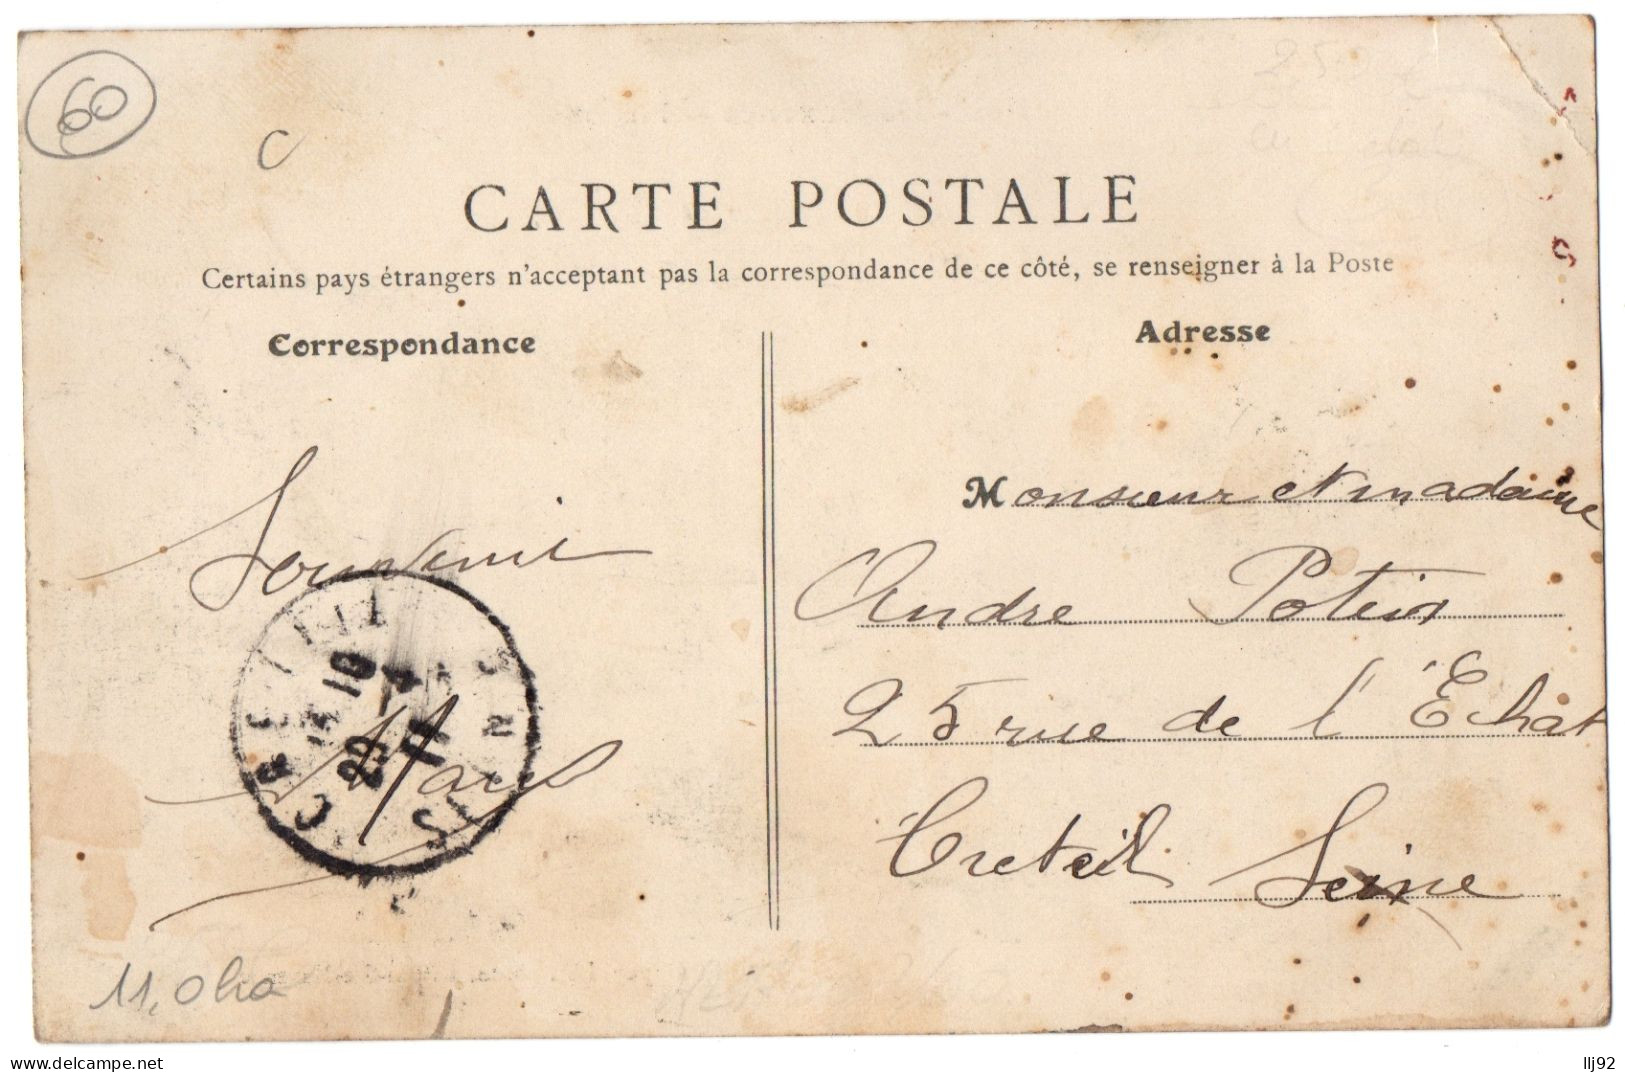 60
C
CARTE POSTALE
Certains pays étrangers n'acceptant pas la correspondance de ce côté, se renseigner à la Poste
Correspondance
Adresse
Souvenir
Monsieur et madame
Andre Potier
25 rue de l'Échat
Creteil Seine
CRETEIL
SEINE
www.delcampe.net
llj92